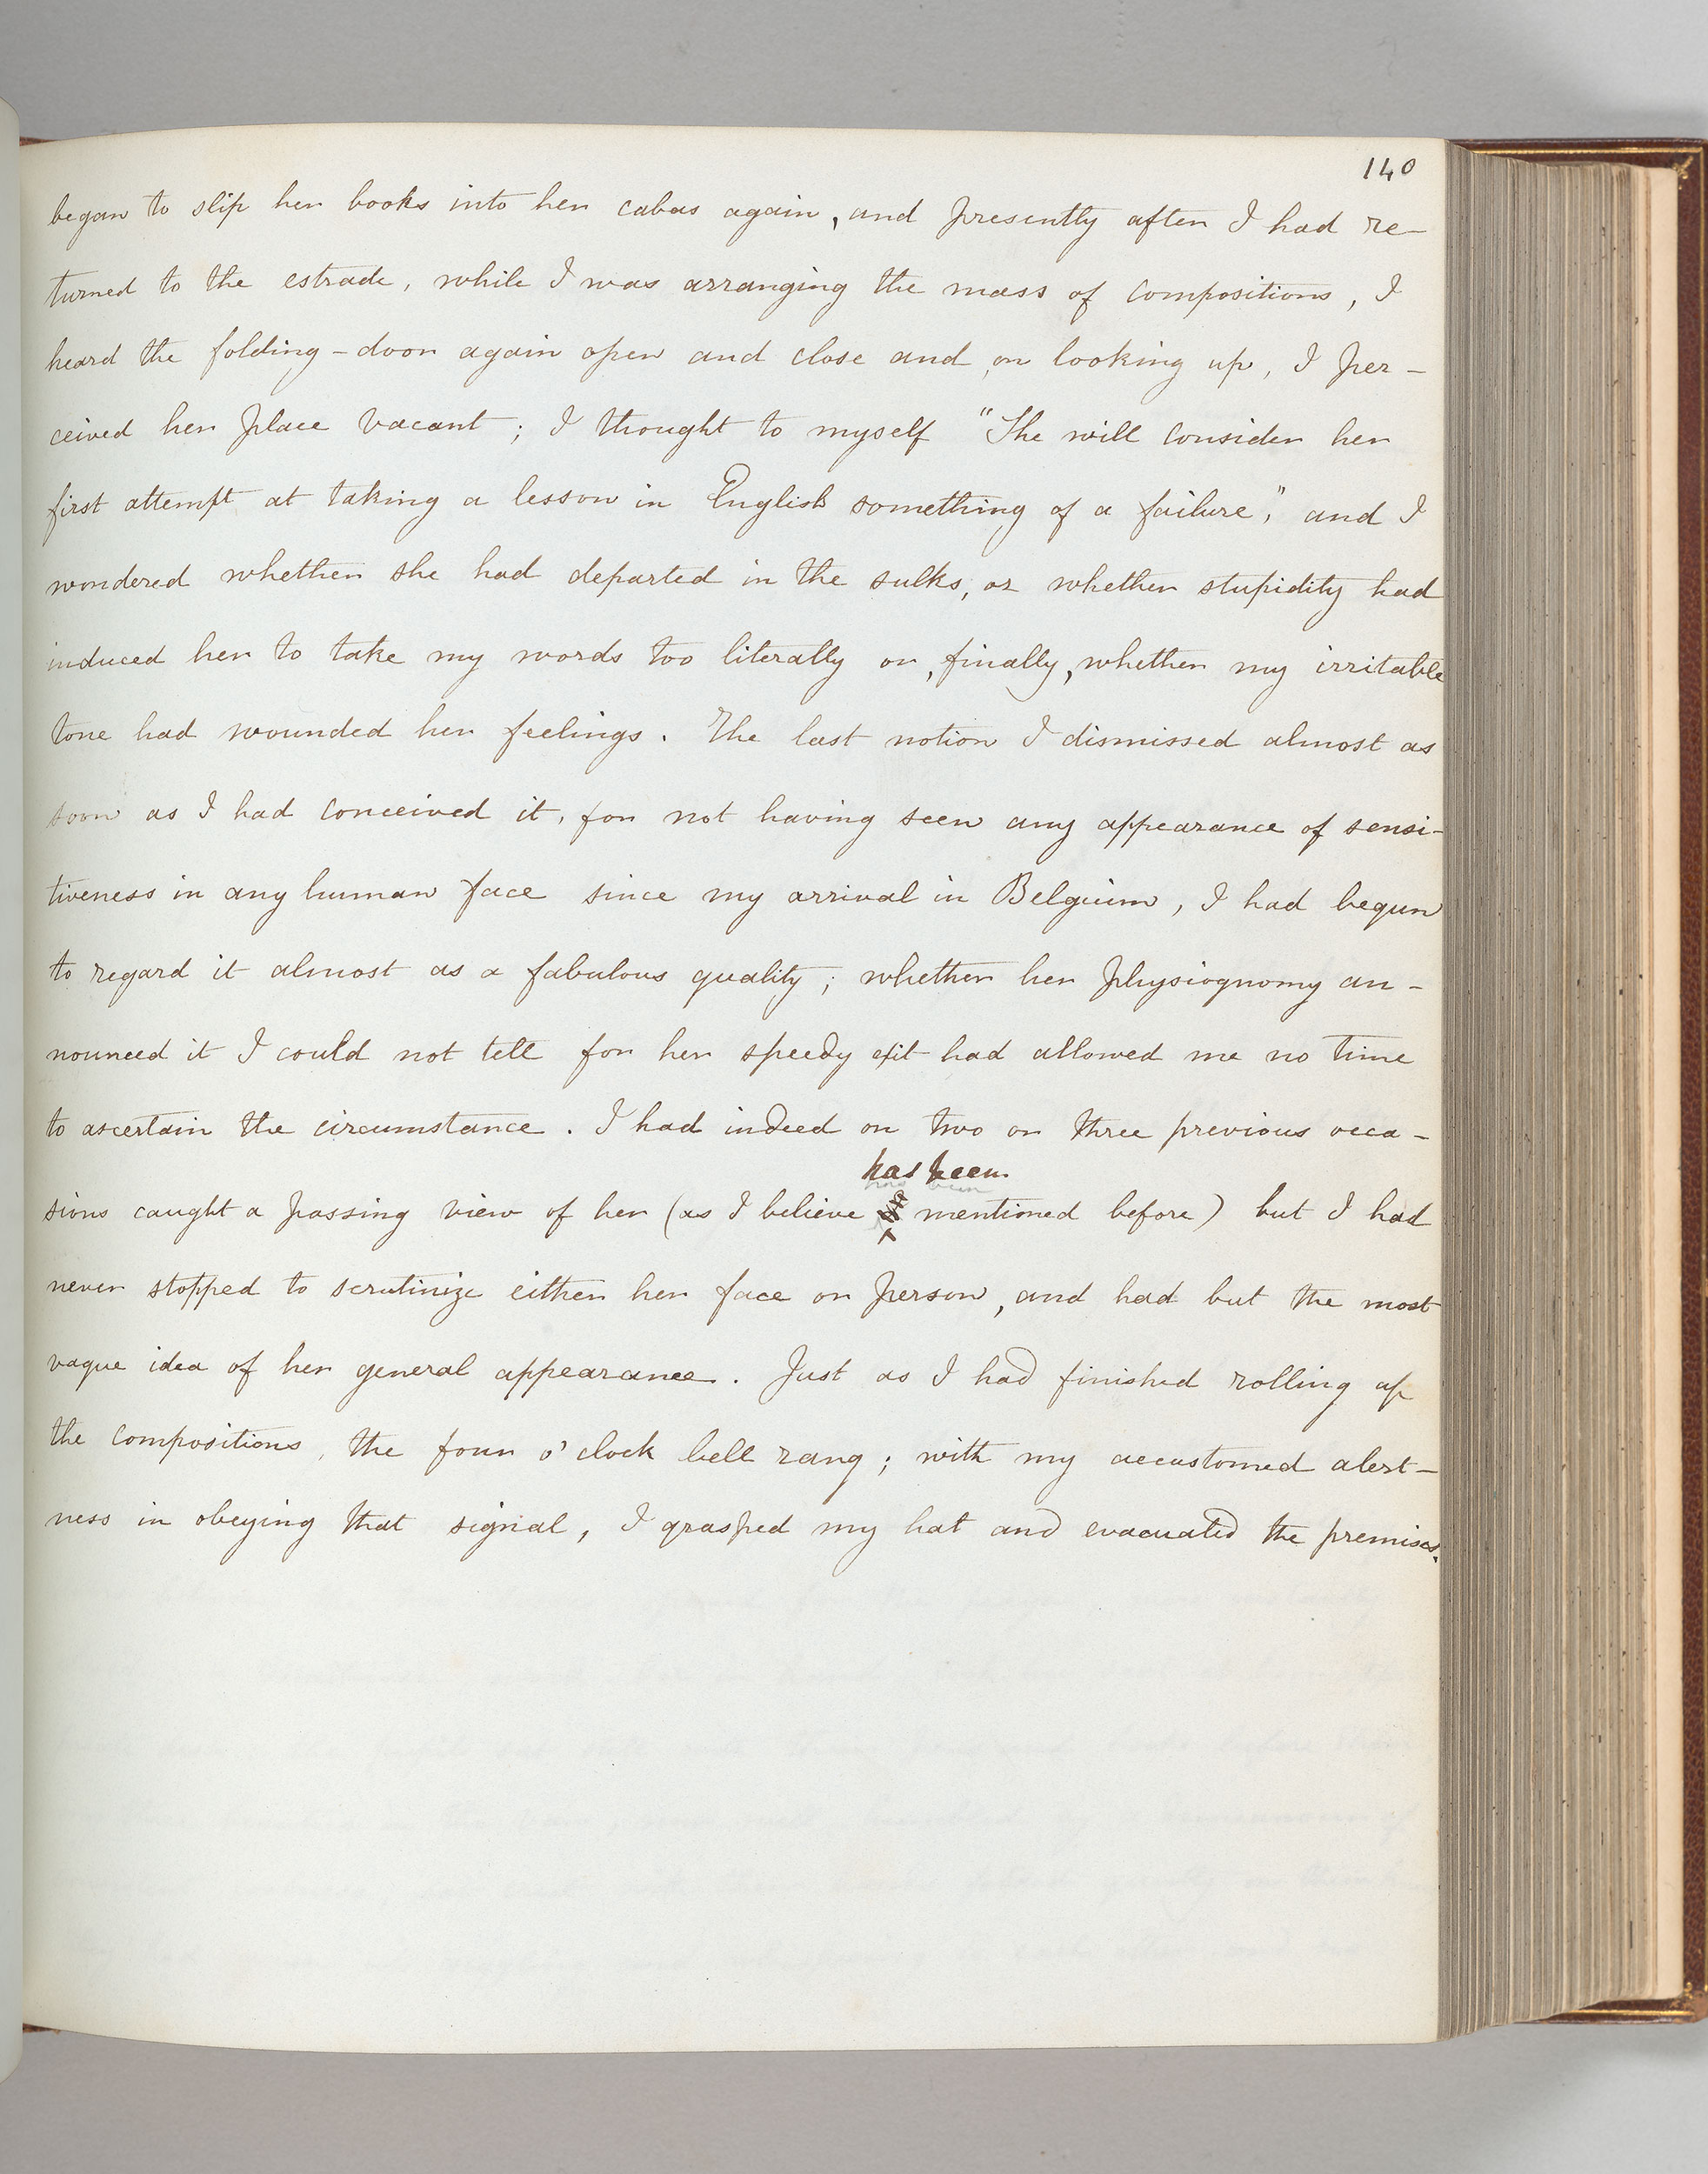 140
began to slip her books into her cabas again, and presently after I had re-
turned to the estrade, while I was arranging the mass of compositions, I
heard the folding-door again open and close and, on looking up, I per-
ceived her place vacant; I thought to myself "She will consider her
first attempt at taking a lesson in English something of a failure", and I
wondered whether she had departed in the sulks, or whether stupidity had
induced her to take my words too literally or, finally, whether my irritable
tone had wounded her feelings. The last notion I dismissed almost as
soon as I had conceived it, for not having seen any appearance of sensi-
tiveness in any human face since my arrival in Belgium, I had begun
to regard it almost as a fabulous quality; whether her physiognomy an-
nounced it I could not tell for her speedy exit had allowed me no time
to ascertain the circumstance. I had indeed on two or three previous occa-
has been
sions caught a passing view of her (as I believe mentioned before) but I had
never stopped to scrutinize either her face or person, and had but the most
vague idea of her general appearance. Just as I had finished rolling up
the compositions, the four o'clock bell rang; with my accustomed alert-
ness in obeying that signal, I grasped my hat and evacuated the premises.